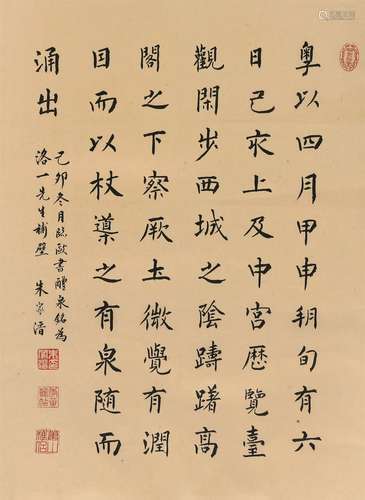 粤以四月甲申朔旬有六
日己亥上及中宫歷覽臺
觀閑步西城之陰躊躇高
閣之下察厥土微覺有潤
因而以杖導之有泉随而
涌出
己卯冬月臨歐書醴泉銘為
洛一先生補壁 朱家濟